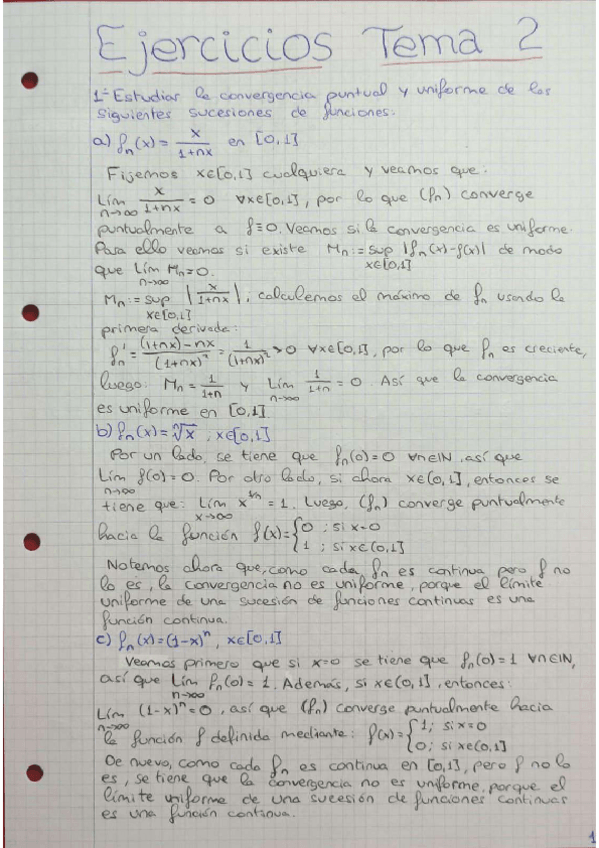 Ejercicios Tema 2
1- Estudiar la convergencia puntual y uniforme de las
siguientes sucesiones de funciones.
a) fₙ(x) = x/(1+nx) en [0,1]
Fijemos x∈[0,1] cualquiera y veamos que:
Lím_{n→∞} x/(1+nx) = 0 ∀x∈[0,1], por lo que (fₙ) converge
puntualmente a f≡0. Veamos si la convergencia es uniforme.
Para ello veamos si existe Mₙ := sup_{x∈[0,1]} |fₙ(x)-f(x)| de modo
que Lím_{n→∞} Mₙ=0.
Mₙ := sup_{x∈[0,1]} |x/(1+nx)|, calculemos el máximo de fₙ usando la
primera derivada:
fₙ' = ((1+nx)-nx)/(1+nx)² = 1/(1+nx)² > 0 ∀x∈[0,1], por lo que fₙ es creciente,
luego: Mₙ = 1/(1+n) y Lím_{n→∞} 1/(1+n) = 0. Así que la convergencia
es uniforme en [0,1].
b) fₙ(x) = ⁿ√x, x∈[0,1]
Por un lado, se tiene que fₙ(0)=0 ∀n∈ℕ, así que
Lím_{n→∞} f(0)=0. Por otro lado, si ahora x∈(0,1], entonces se
tiene que: Lím_{x→∞} x^{1/n} = 1. Luego, (fₙ) converge puntualmente
hacia la función f(x)={0 ; si x=0
1 ; si x∈(0,1]
Notemos ahora que, como cada fₙ es continua pero f no
lo es, la convergencia no es uniforme, porque el límite
uniforme de una sucesión de funciones continuas es una
función continua.
c) fₙ(x)=(1-x)ⁿ, x∈[0,1]
Veamos primero que si x=0 se tiene que fₙ(0)=1 ∀n∈ℕ,
así que Lím_{n→∞} fₙ(0)=1. Además, si x∈(0,1], entonces:
Lím_{n→∞} (1-x)ⁿ=0, así que (fₙ) converge puntualmente hacia
la función f definida mediante: f(x)={1; si x=0
0; si x∈(0,1]
De nuevo, como cada fₙ es continua en [0,1], pero f no lo
es, se tiene que la convergencia no es uniforme, porque el
límite uniforme de una sucesión de funciones continuas
es una función continua.
1